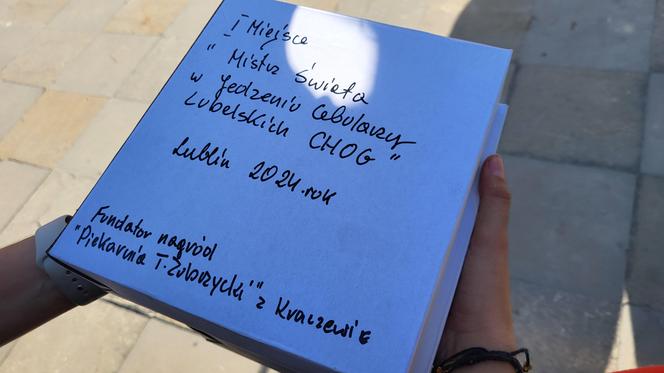 I Miejsce
" Mistrz Świata
w Jedzeniu Cebularzy
Lubelskich CHOG "
Lublin 2024.rok
Fundator nagród
"Piekarnia T. Zubrzycki" z Kraczewic